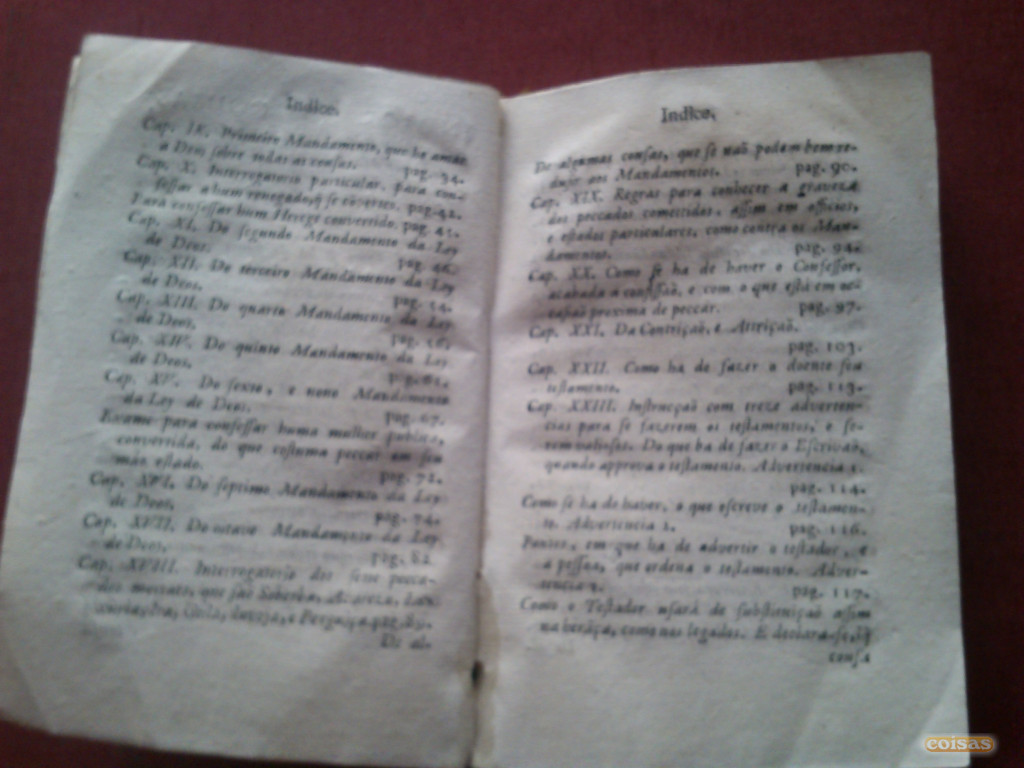 Indice.
Cap. IX. Primeiro Mandamento, que he amar
a Deos sobre todas as cousas. pag. 34.
Cap. X. Interrogatorio particular, para con-
fessar a hum renegado, q̃ se converte. pag. 42.
Para confessar hum Herege convertido. pag. 45.
Cap. XI. Do segundo Mandamento da Ley
de Deos. pag. 46.
Cap. XII. Do terceiro Mandamento da Ley
de Deos. pag. 54.
Cap. XIII. Do quarto Mandamento da Ley
de Deos. pag. 56.
Cap. XIV. Do quinto Mandamento da Ley
de Deos. pag. 61.
Cap. XV. Do sexto, e nono Mandamento
da Ley de Deos. pag. 67.
Exame para confessar huma mulher publica,
convertida, do que costuma peccar em seu
máo estado. pag. 72.
Cap. XVI. Do septimo Mandamento da Ley
de Deos. pag. 74.
Cap. XVII. Do oitavo Mandamento da Ley
de Deos. pag. 82.
Cap. XVIII. Interrogatorio dos sete pecca-
dos mortaes, que são Soberba, Avareza, Lu-
xuria, Ira, Gula, Inveja, e Perguiça. pag. 85.
De al-
Indice.
De algumas cousas, que se naõ podem bem re-
duzir aos Mandamentos. pag. 90.
Cap. XIX. Regras para conhecer a graveza
dos peccados comettidos, assim em officios,
e estados particulares, como contra os Man-
damentos. pag. 94.
Cap. XX. Como se ha de haver o Confessor,
acabada a confissaõ, e com o que está em oc-
casiaõ proxima de peccar. pag. 97.
Cap. XXI. Da Contriçaõ, e Attriçaõ.
pag. 103.
Cap. XXII. Como ha de fazer o doente seu
testamento. pag. 113.
Cap. XXIII. Instrucçaõ com treze adverten-
cias para se fazerem os testamentos, e se-
rem valiosos. Do que ha de fazer o Escrivaõ,
quando approva o testamento. Advertencia 1.
pag. 114.
Como se ha de haver, o que escreve o testamen-
to. Advertencia 2. pag. 116.
Pontos, em que ha de advertir o testador, e
a pessoa, que ordena o testamento. Adver-
tencia 3. pag. 117.
Como o Testador usará de substituiçaõ assim
na herãça, como nos legados. E declara-se, q̃
cousa
coisas